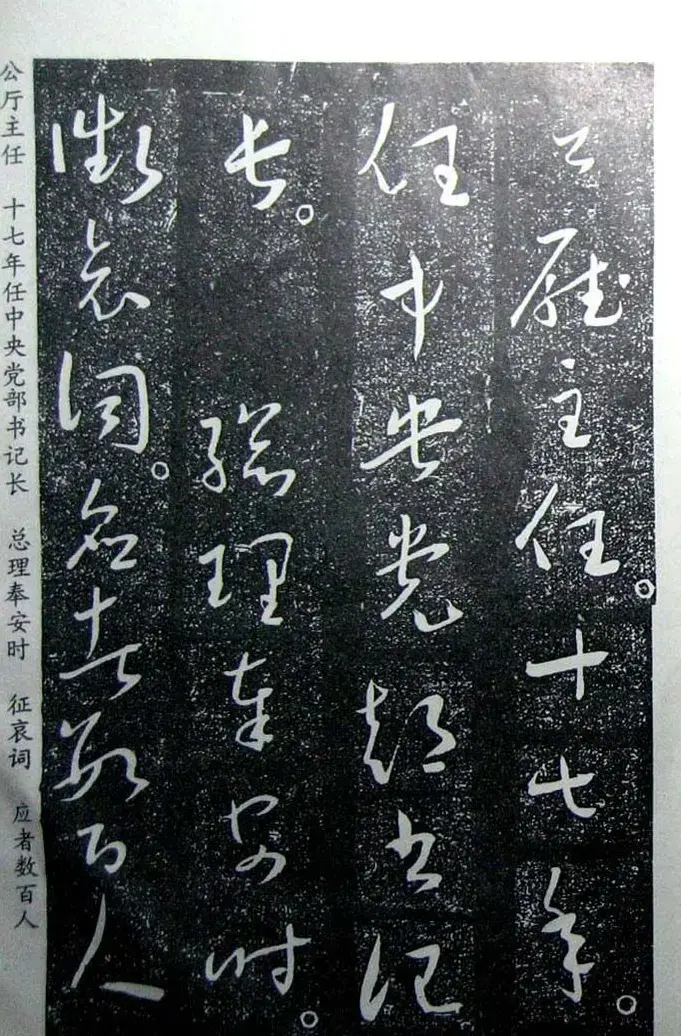 公廳主任。十七年。
任中央黨部書記
長。總理奉安時。
徵哀詞。應者數百人
公厅主任 十七年任中央党部书记长 总理奉安时 征哀词 应者数百人